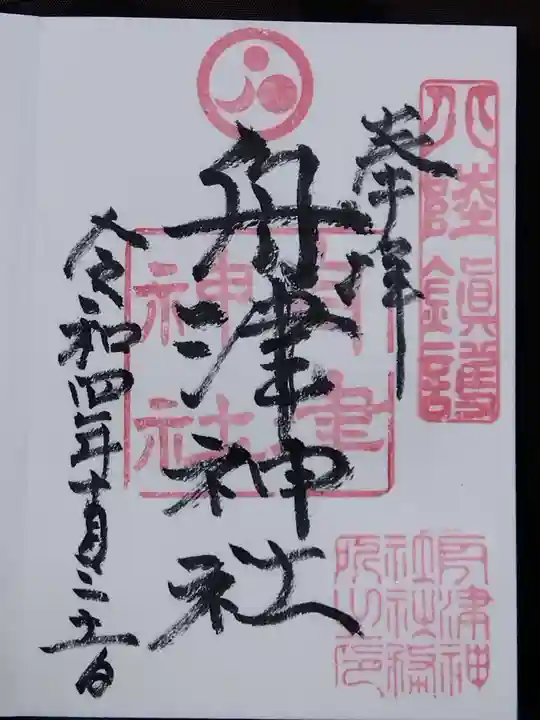 奉拝
北陸鎮護
舟津神社
舟津
神社
舟津神
社社務
所之印
令和四年十月二十一日